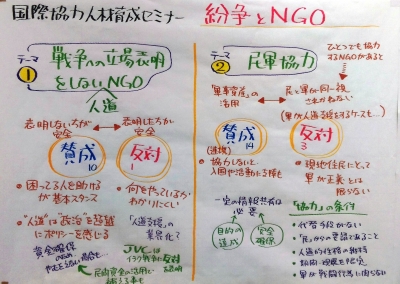 国際協力人材育成セミナー 紛争とNGO
テーマ
①
戦争への立場表明
をしないNGO
人道
表明しない方が
安全
表明した方が
安全
賛成
10
反対
1
・困ってる人を助ける
が基本スタンス
・何をやっているか
わかりにくい
・"人道"は"政治"を超越
にポリシーを感じる
"人道支援"の
業界化で
資金確保
JVCは
イラク戦争に反対
を表明
民間資金の活用で
テーマ
②
民軍協力
ひとつでも協力
するNGOがあると
"軍事資産"の
活用
民と軍が同一視
されかねない
(軍が人道支援をするケースも…)
賛成
14
(連携)
反対
3
・協力しないと
入国や活動に支障も
・現地住民にとって
軍が正義とは
限らない
一定の情報共有は
必要
目的の
達成
安全
確保
"協力"の条件
・代替手段がない
・"民"からの要請であること
・人道的性格の維持
・期間・規模を限定
・軍が戦闘行為に関らない